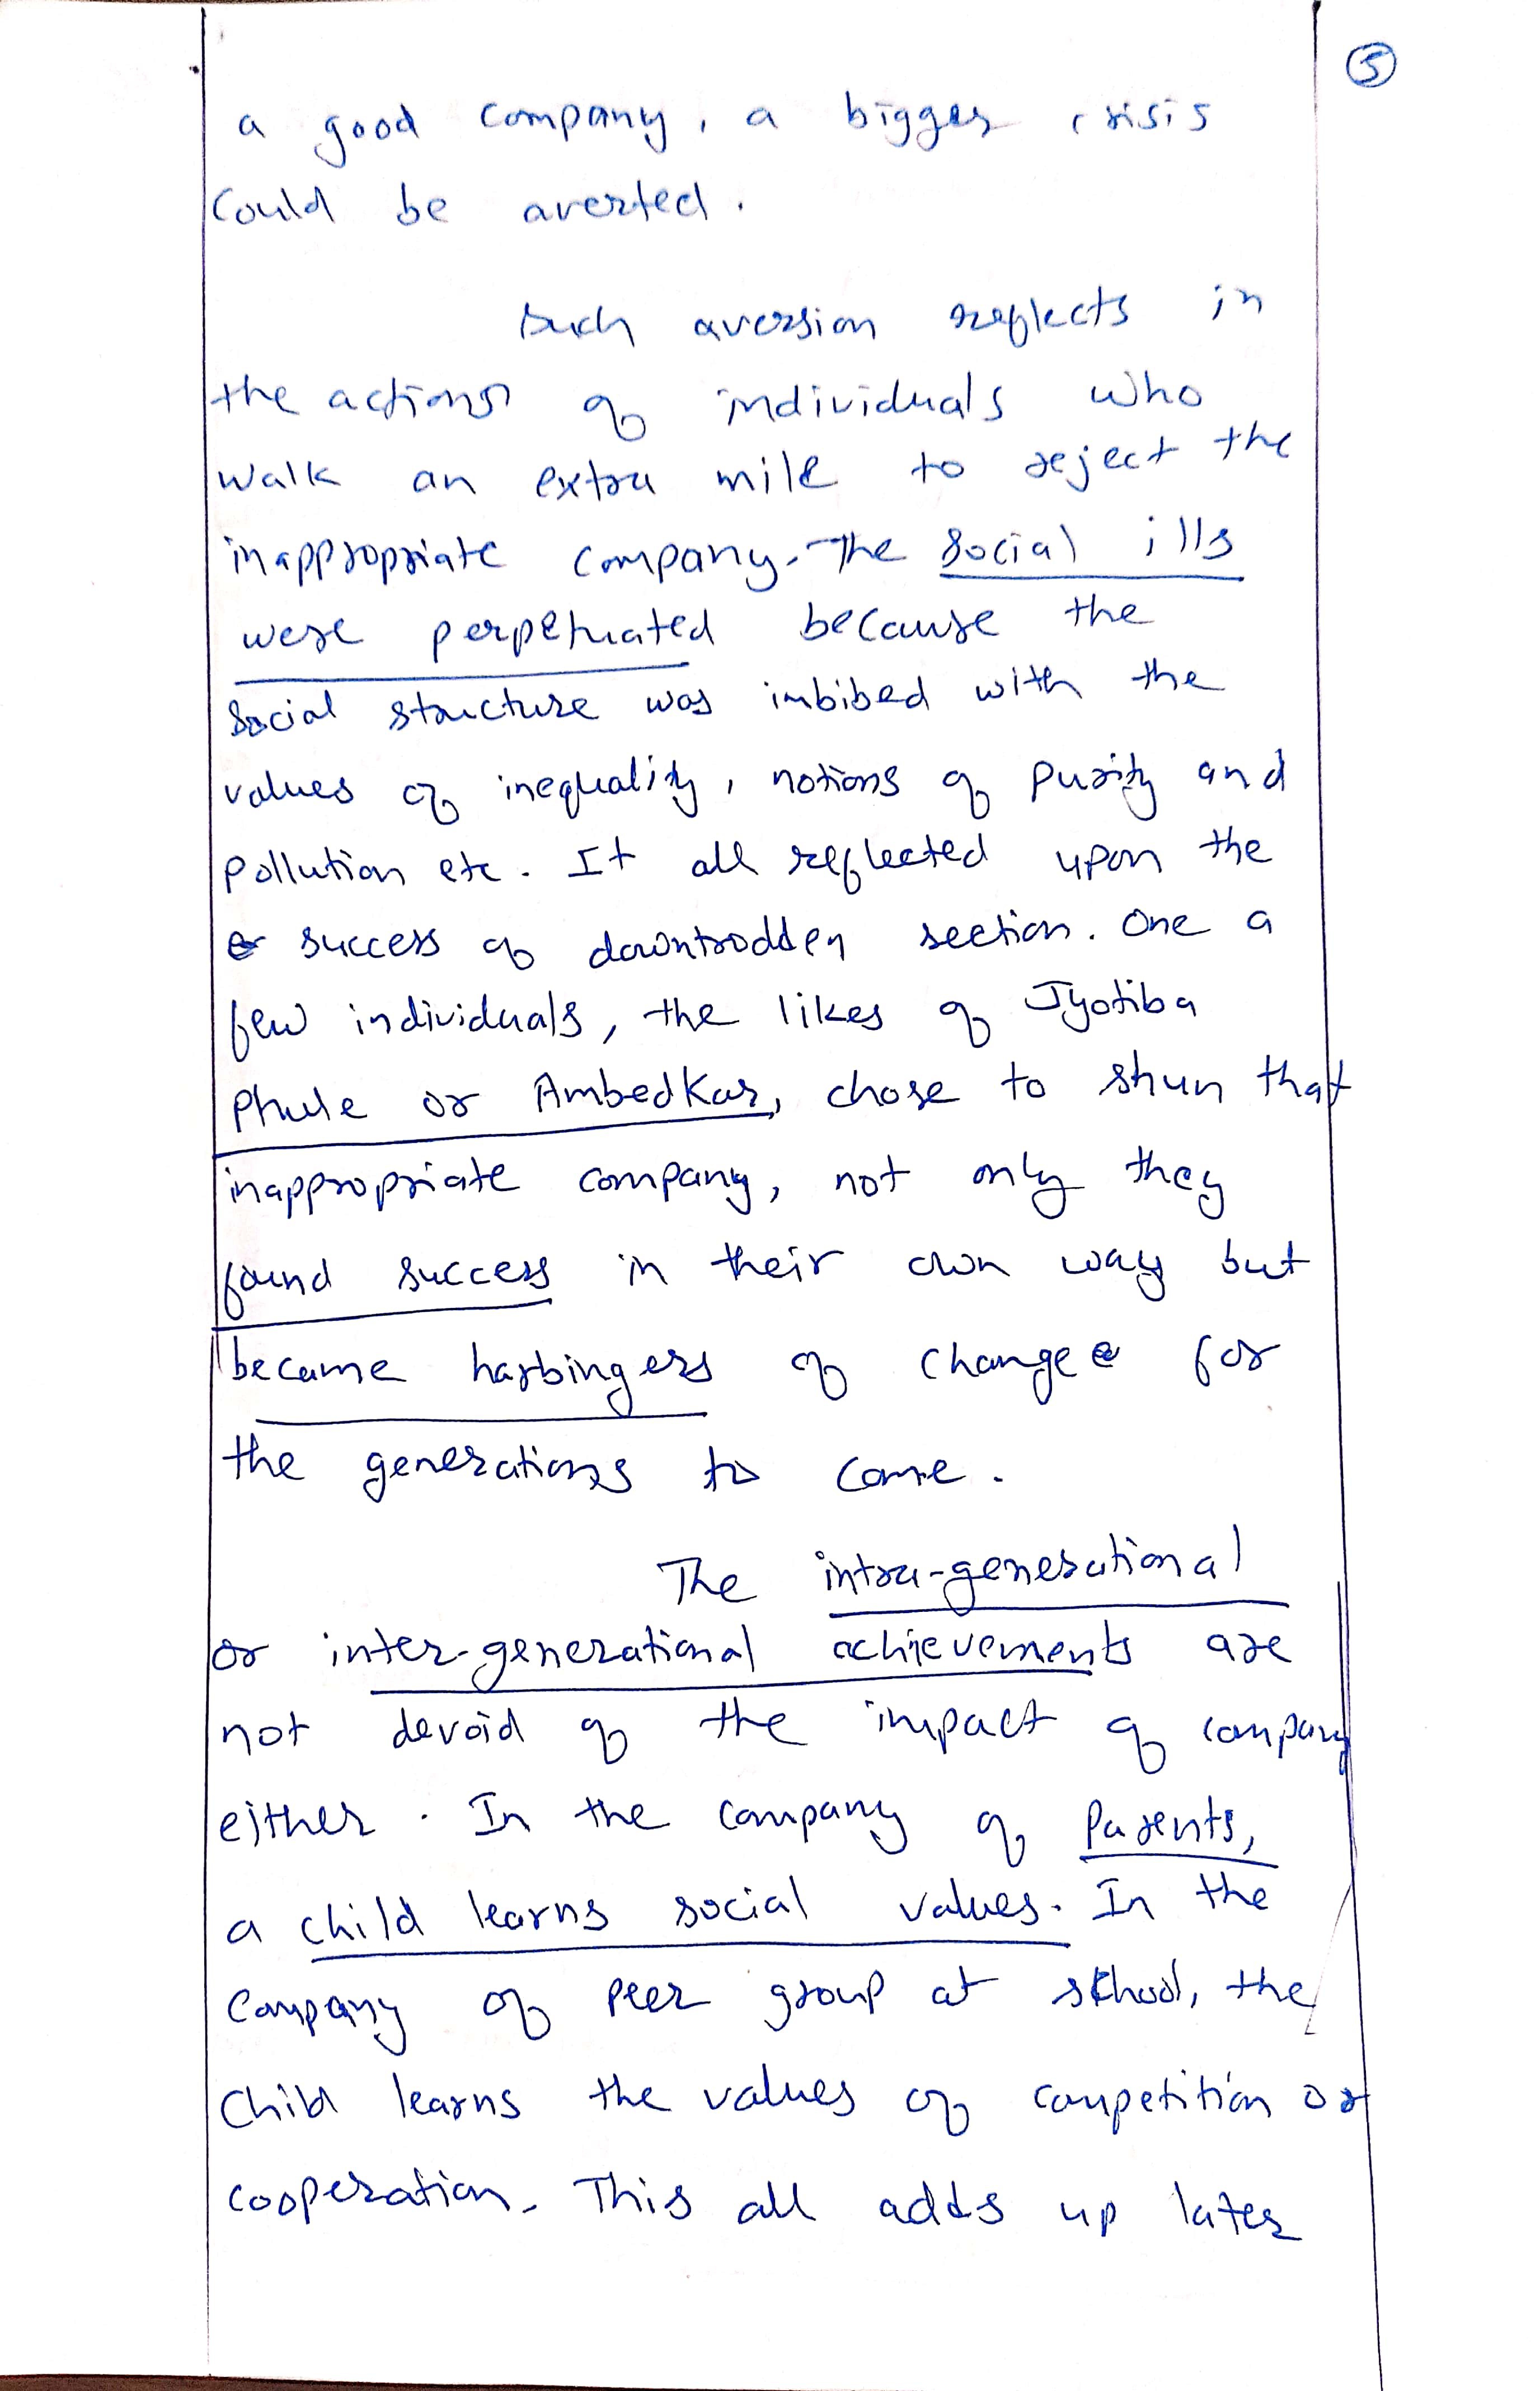 5
a good company, a bigger crisis
could be averted.
Such aversion reflects in
the actions of individuals who
walk an extra mile to reject the
inappropriate company. The social ills
were perpetuated because the
social structure was imbibed with the
values of inequality, notions of purity and
pollution etc. It all reflected upon the
success of downtrodden section. One a
few individuals, the likes of Jyotiba
Phule or Ambedkar, chose to shun that
inappropriate company, not only they
found success in their own way but
became harbingers of change for
the generations to come.
The intra-generational
or inter-generational achievements are
not devoid of the impact of company
either. In the company of Parents,
a child learns social values. In the
company of peer group at school, the
child learns the values of competition or
cooperation. This all adds up later